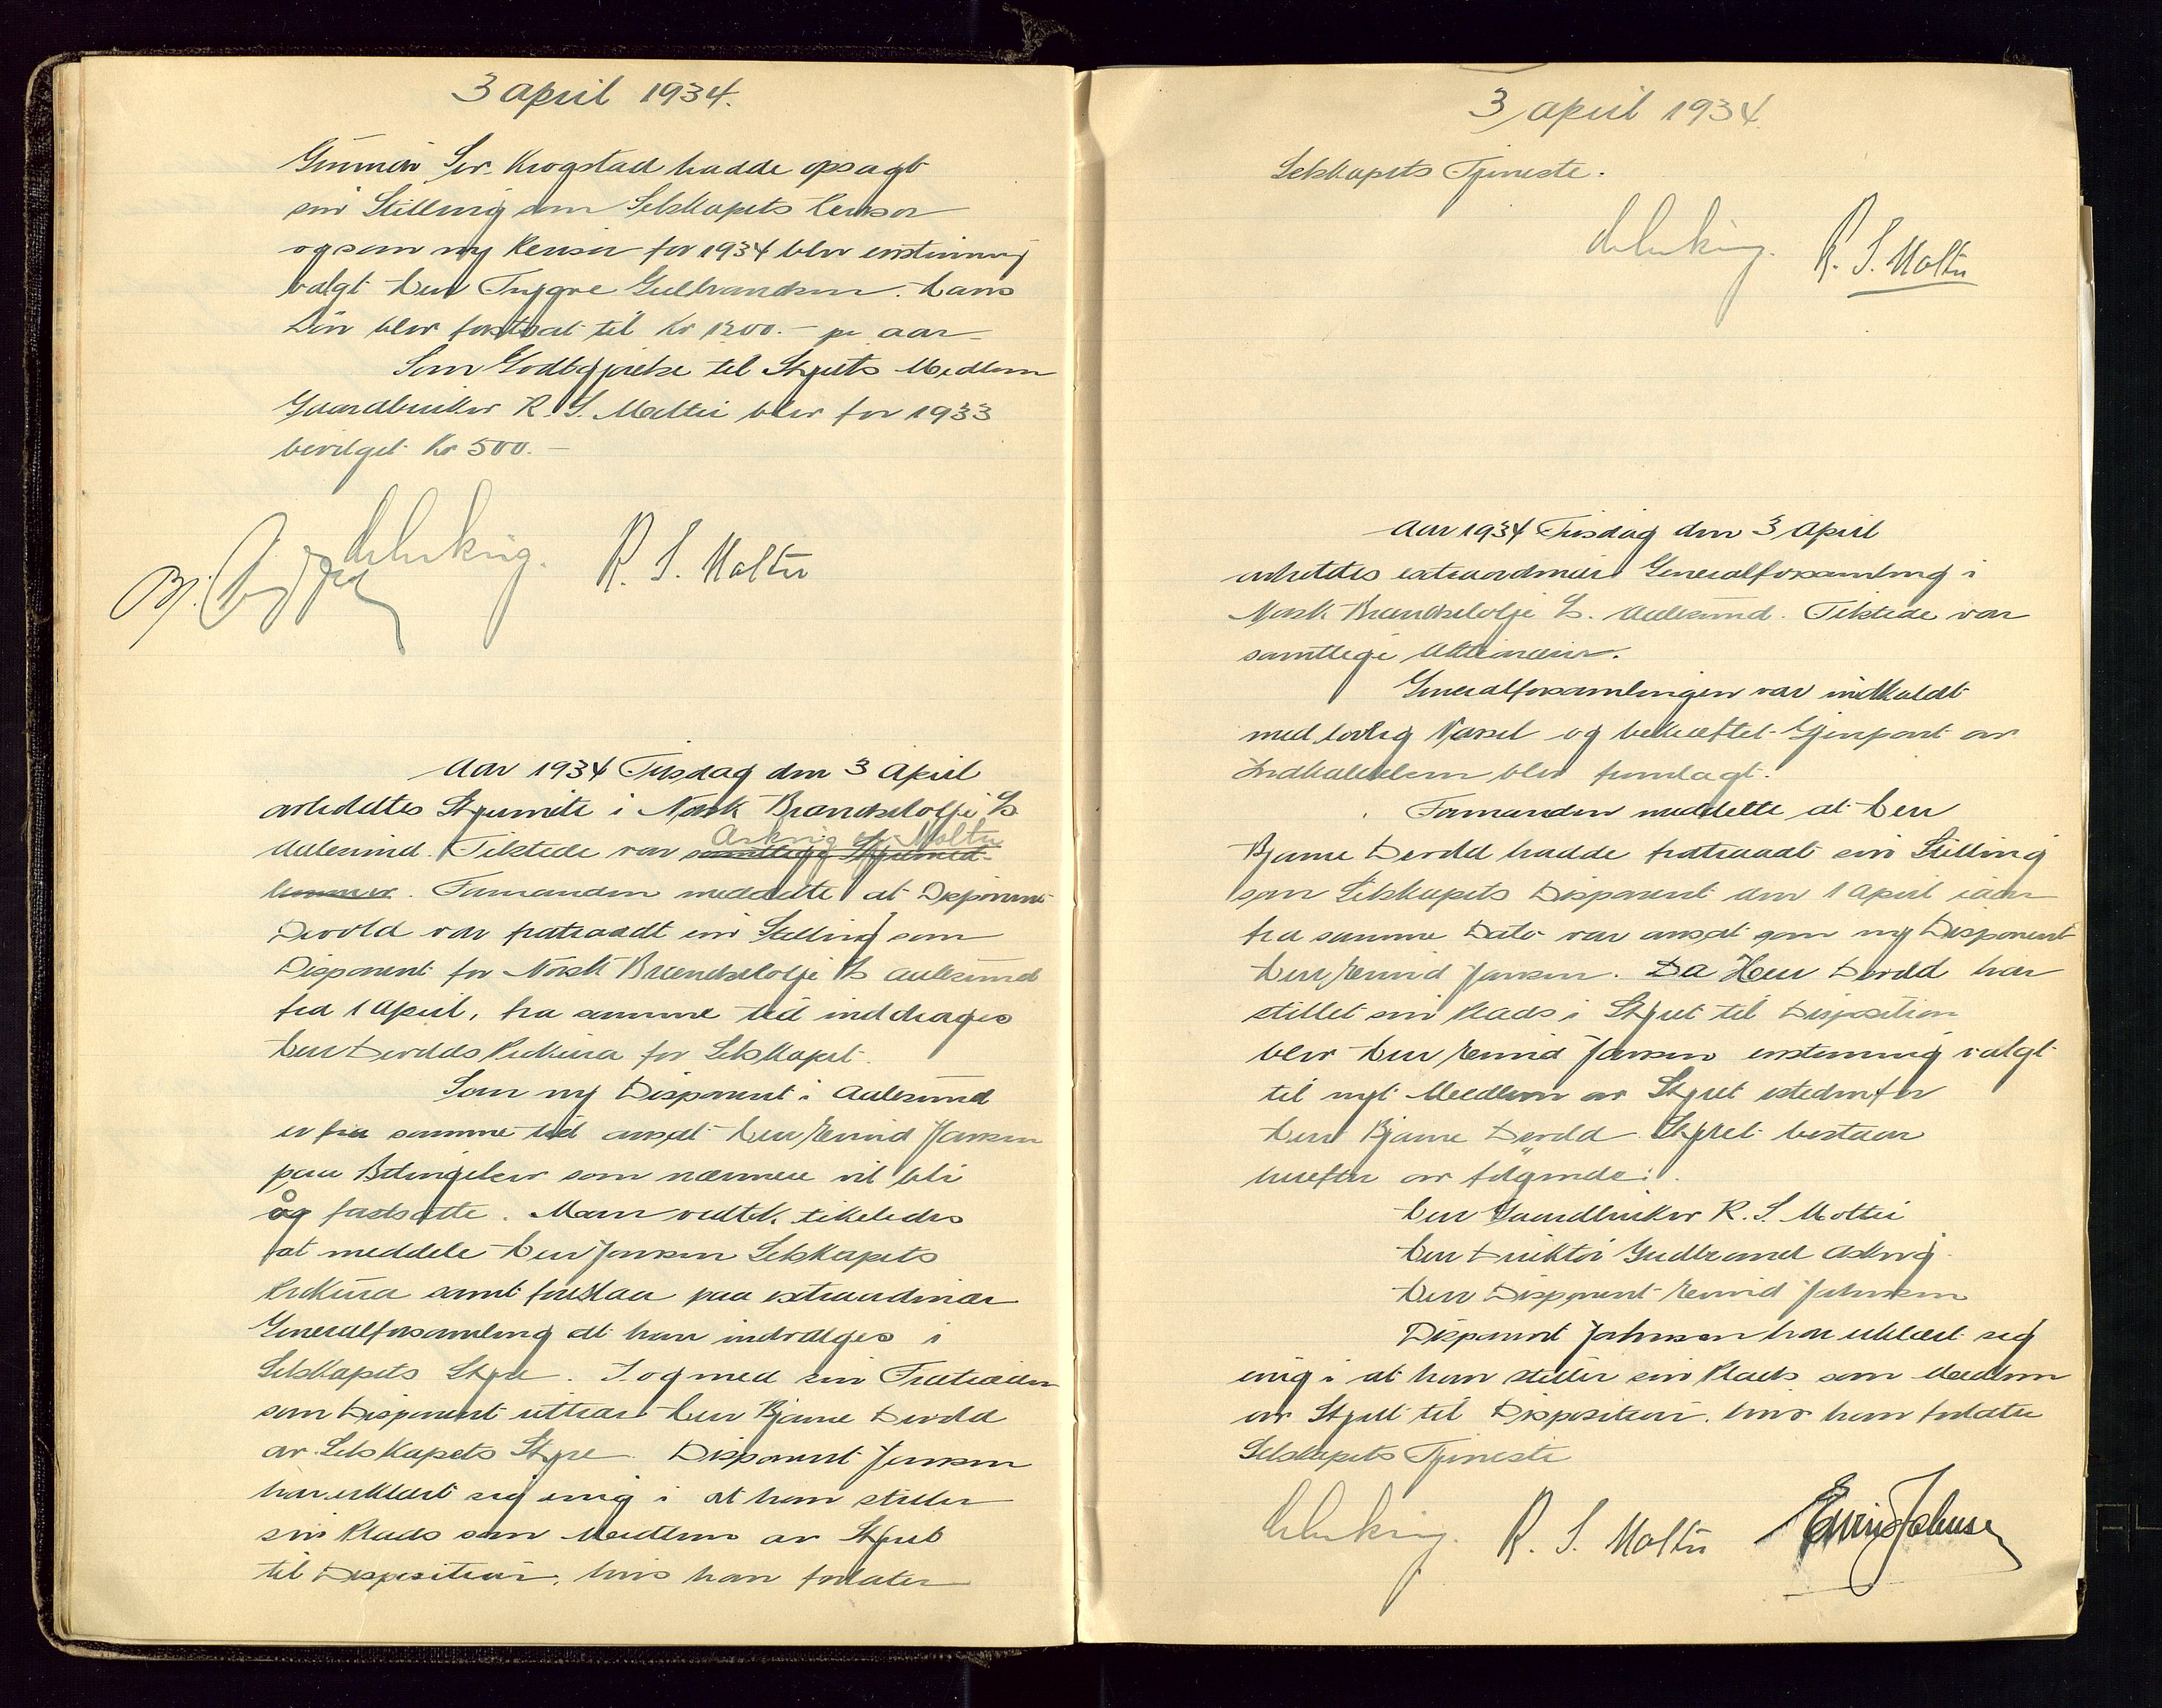 3 april 1934.
Gunnar Sev. Krogstad hadde opsagt
sin Stilling som Selskapets Revisor
og som ny Revisor for 1934 blev enstemmig
valgt Herr Trygve Gulbrandsen. Hans
Løn blev fastsat til Kr 1200.- pr aar
Som Godtgjørelse til Styrets Medlem
Gaardbruker R. S. Moltu blev for 1933
bevilget Kr 500.-
R. S. Moltu
Aar 1934 Tirsdag den 3 April
avholdtes Styremöte i Norsk Brændselolje A/S
Aalesund. Tilstede var samtlige Styremed-
Askvig og Moltu
lemmer. Formanden meddelte at Disponent
Devold var fratraadt sin Stilling som
Disponent for Norsk Brændselolje A/S Aalesund
fra 1 April, fra samme tid inddrages
Herr Devolds Prokura for Selskapet.
Som ny Disponent i Aalesund
er fra samme tid ansat Herr Eivind Jansen
paa Betingelser som nærmere vil bli
å fastsatte. Man vedtok likeledes
at meddele Herr Jansen Selskapets
Prokura samt foreslaa paa extraordinær
Generalforsamling at han indvælges i
Selskapets Styre. I og med sin Fratræden
som Disponent uttrær Herr Bjarne Devold
av Selskapets Styre. Disponent Jansen
har erklært sig enig i at han stiller
sin Plads som Medlem av Styret
til Disposition, hvis han forlater
3 april 1934
Selskapets Tjeneste.
R. S. Moltu
Aar 1934 Tirsdag den 3 April
avholdtes extraordinær Generalforsamling i
Norsk Brændselolje A/S. Aalesund. Tilstede var
samtlige Aktionærer.
Generalforsamlingen var indkaldt
med lovlig Varsel og bekræftet Gjenpart av
Indkaldelsen blev fremlagt.
Formanden meddelte at Herr
Bjarne Devold hadde fratraadt sin Stilling
som Selskapets Disponent den 1 April iaar
fra samme Dato var ansat som ny Disponent
Herr Eivind Jansen. Da Herr Devold har
stillet sin Plads i Styret til Disposition
blev Herr Eivind Jansen enstemmig valgt
til nyt Medlem av Styret istedenfor
Herr Bjarne Devold. Styret bestaar
herefter av følgende:
Herr Gaardbruker R. S. Moltu
Herr Direktör Gudbrand Askvig
Herr Disponent Eivind Johnsen
Disponent Johnsen har erklært sig
enig i at han stiller sin Plads som Medlem
av Styret til Disposition, hvis han forlater
Selskapets Tjeneste
R. S. Moltu Eivind Johnsen